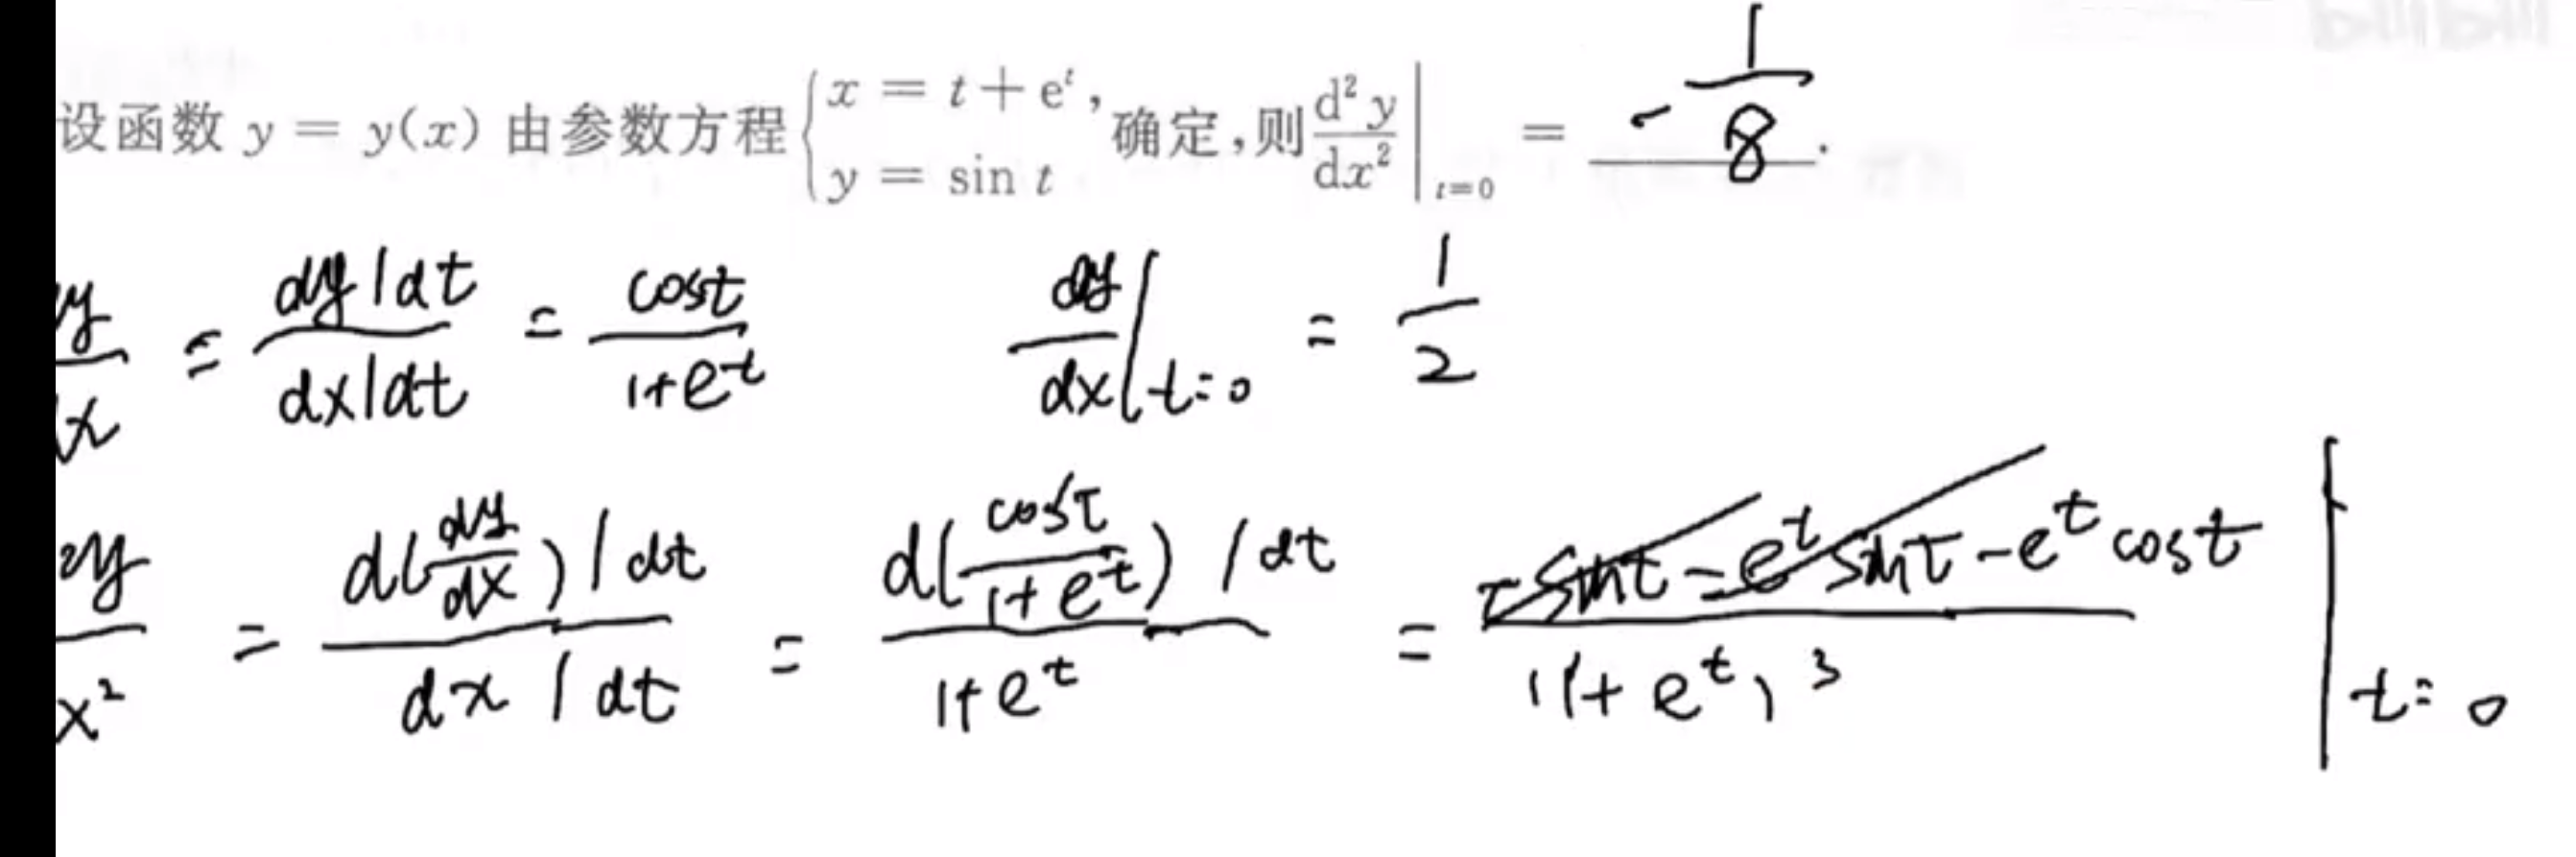 设函数 y = y(x) 由参数方程 { x = t + e^t, y = sin t 确定,则 d²y/dx² |_{t=0} = -1/8 .
y/x = (dy/dt)/(dx/dt) = cost/(1+e^t)    dy/dx |_{t=0} = 1/2
2y/x² = (d(dy/dx)/dt)/(dx/dt) = (d(cost/(1+e^t))/dt)/(1+e^t) = (-sint - e^t sint - e^t cost)/(1+e^t)³ |_{t=0}